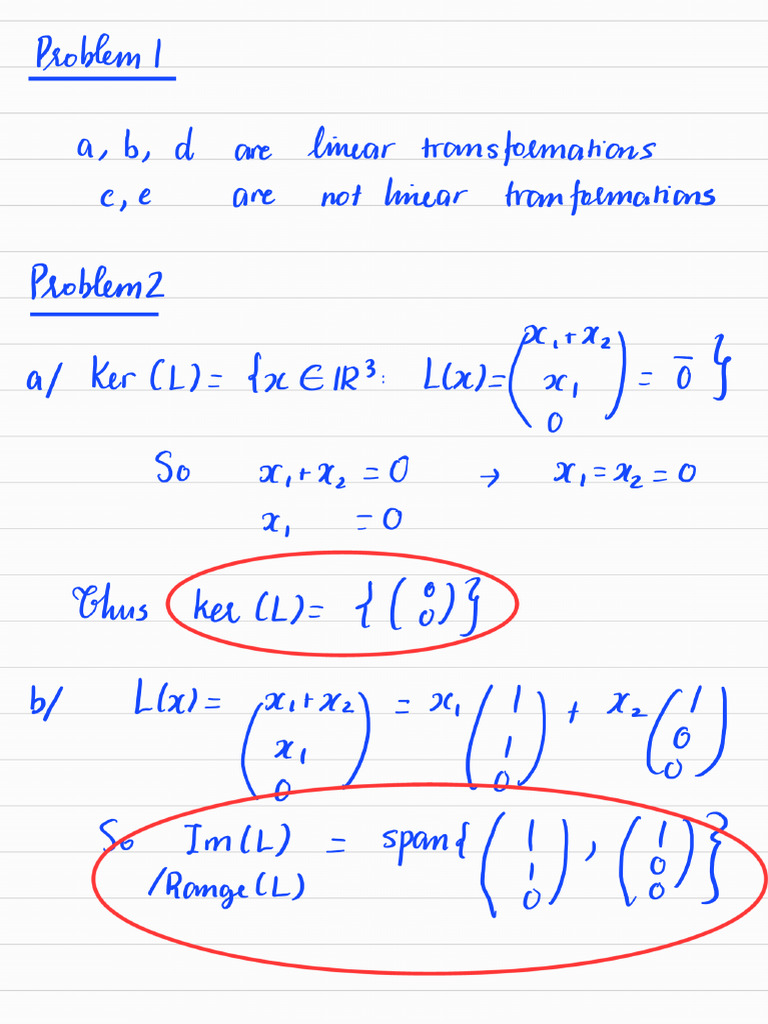 Problem 1
a, b, d are linear transformations
c, e are not linear tranformations
Problem 2
a/ Ker (L) = {x ∈ IR³: L(x) = (x₁+x₂, x₁, 0) = 0̄ }
So x₁+x₂ = 0 → x₁ = x₂ = 0
x₁ = 0
Thus ker (L) = { (0 0) }
b/ L(x) = (x₁+x₂, x₁, 0) = x₁ (1 1 0) + x₂ (1 0 0)
So Im(L) = span{ (1 1 0), (1 0 0) }
/Range(L)